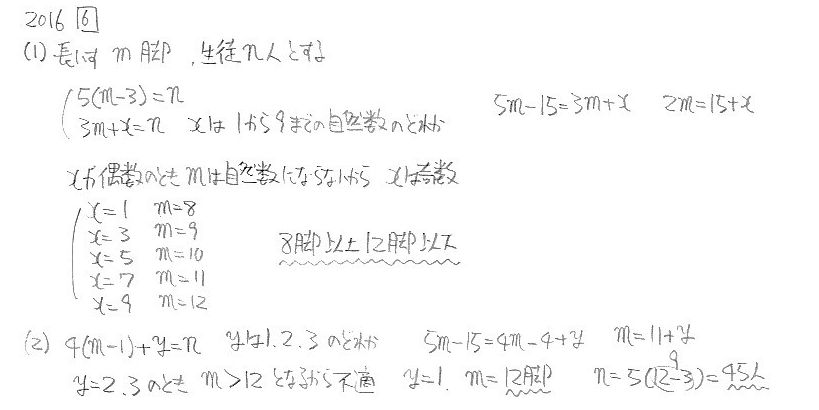 2016 6
(1) 長いす m脚, 生徒n人とする
5(m-3)=n
3m+x=n xは1から9までの自然数のどれか 5m-15=3m+x 2m=15+x
xが偶数のとき mは自然数にならないから xは奇数
x=1 m=8
x=3 m=9
x=5 m=10 8脚以上12脚以下
x=7 m=11
x=9 m=12
(2) 4(m-1)+y=n yは1.2.3のどれか 5m-15=4m-4+y m=11+y
y=2.3のとき m>12となるから不適 y=1. m=12脚 n=5(12-3)=45人
9